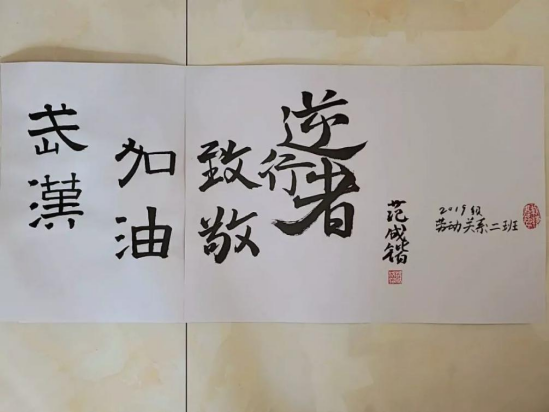 武漢
加油
致敬
逆行者
范成锴
2019级
劳动关系二班